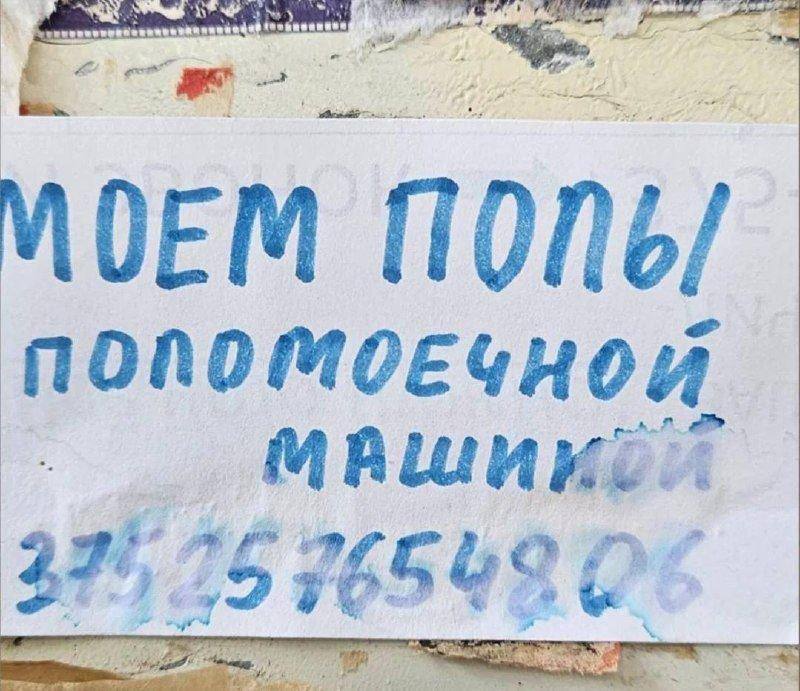 МОЕМ ПОПЫ
ПОПОМОЕЧНОЙ
МАШИНОЙ
375257654806